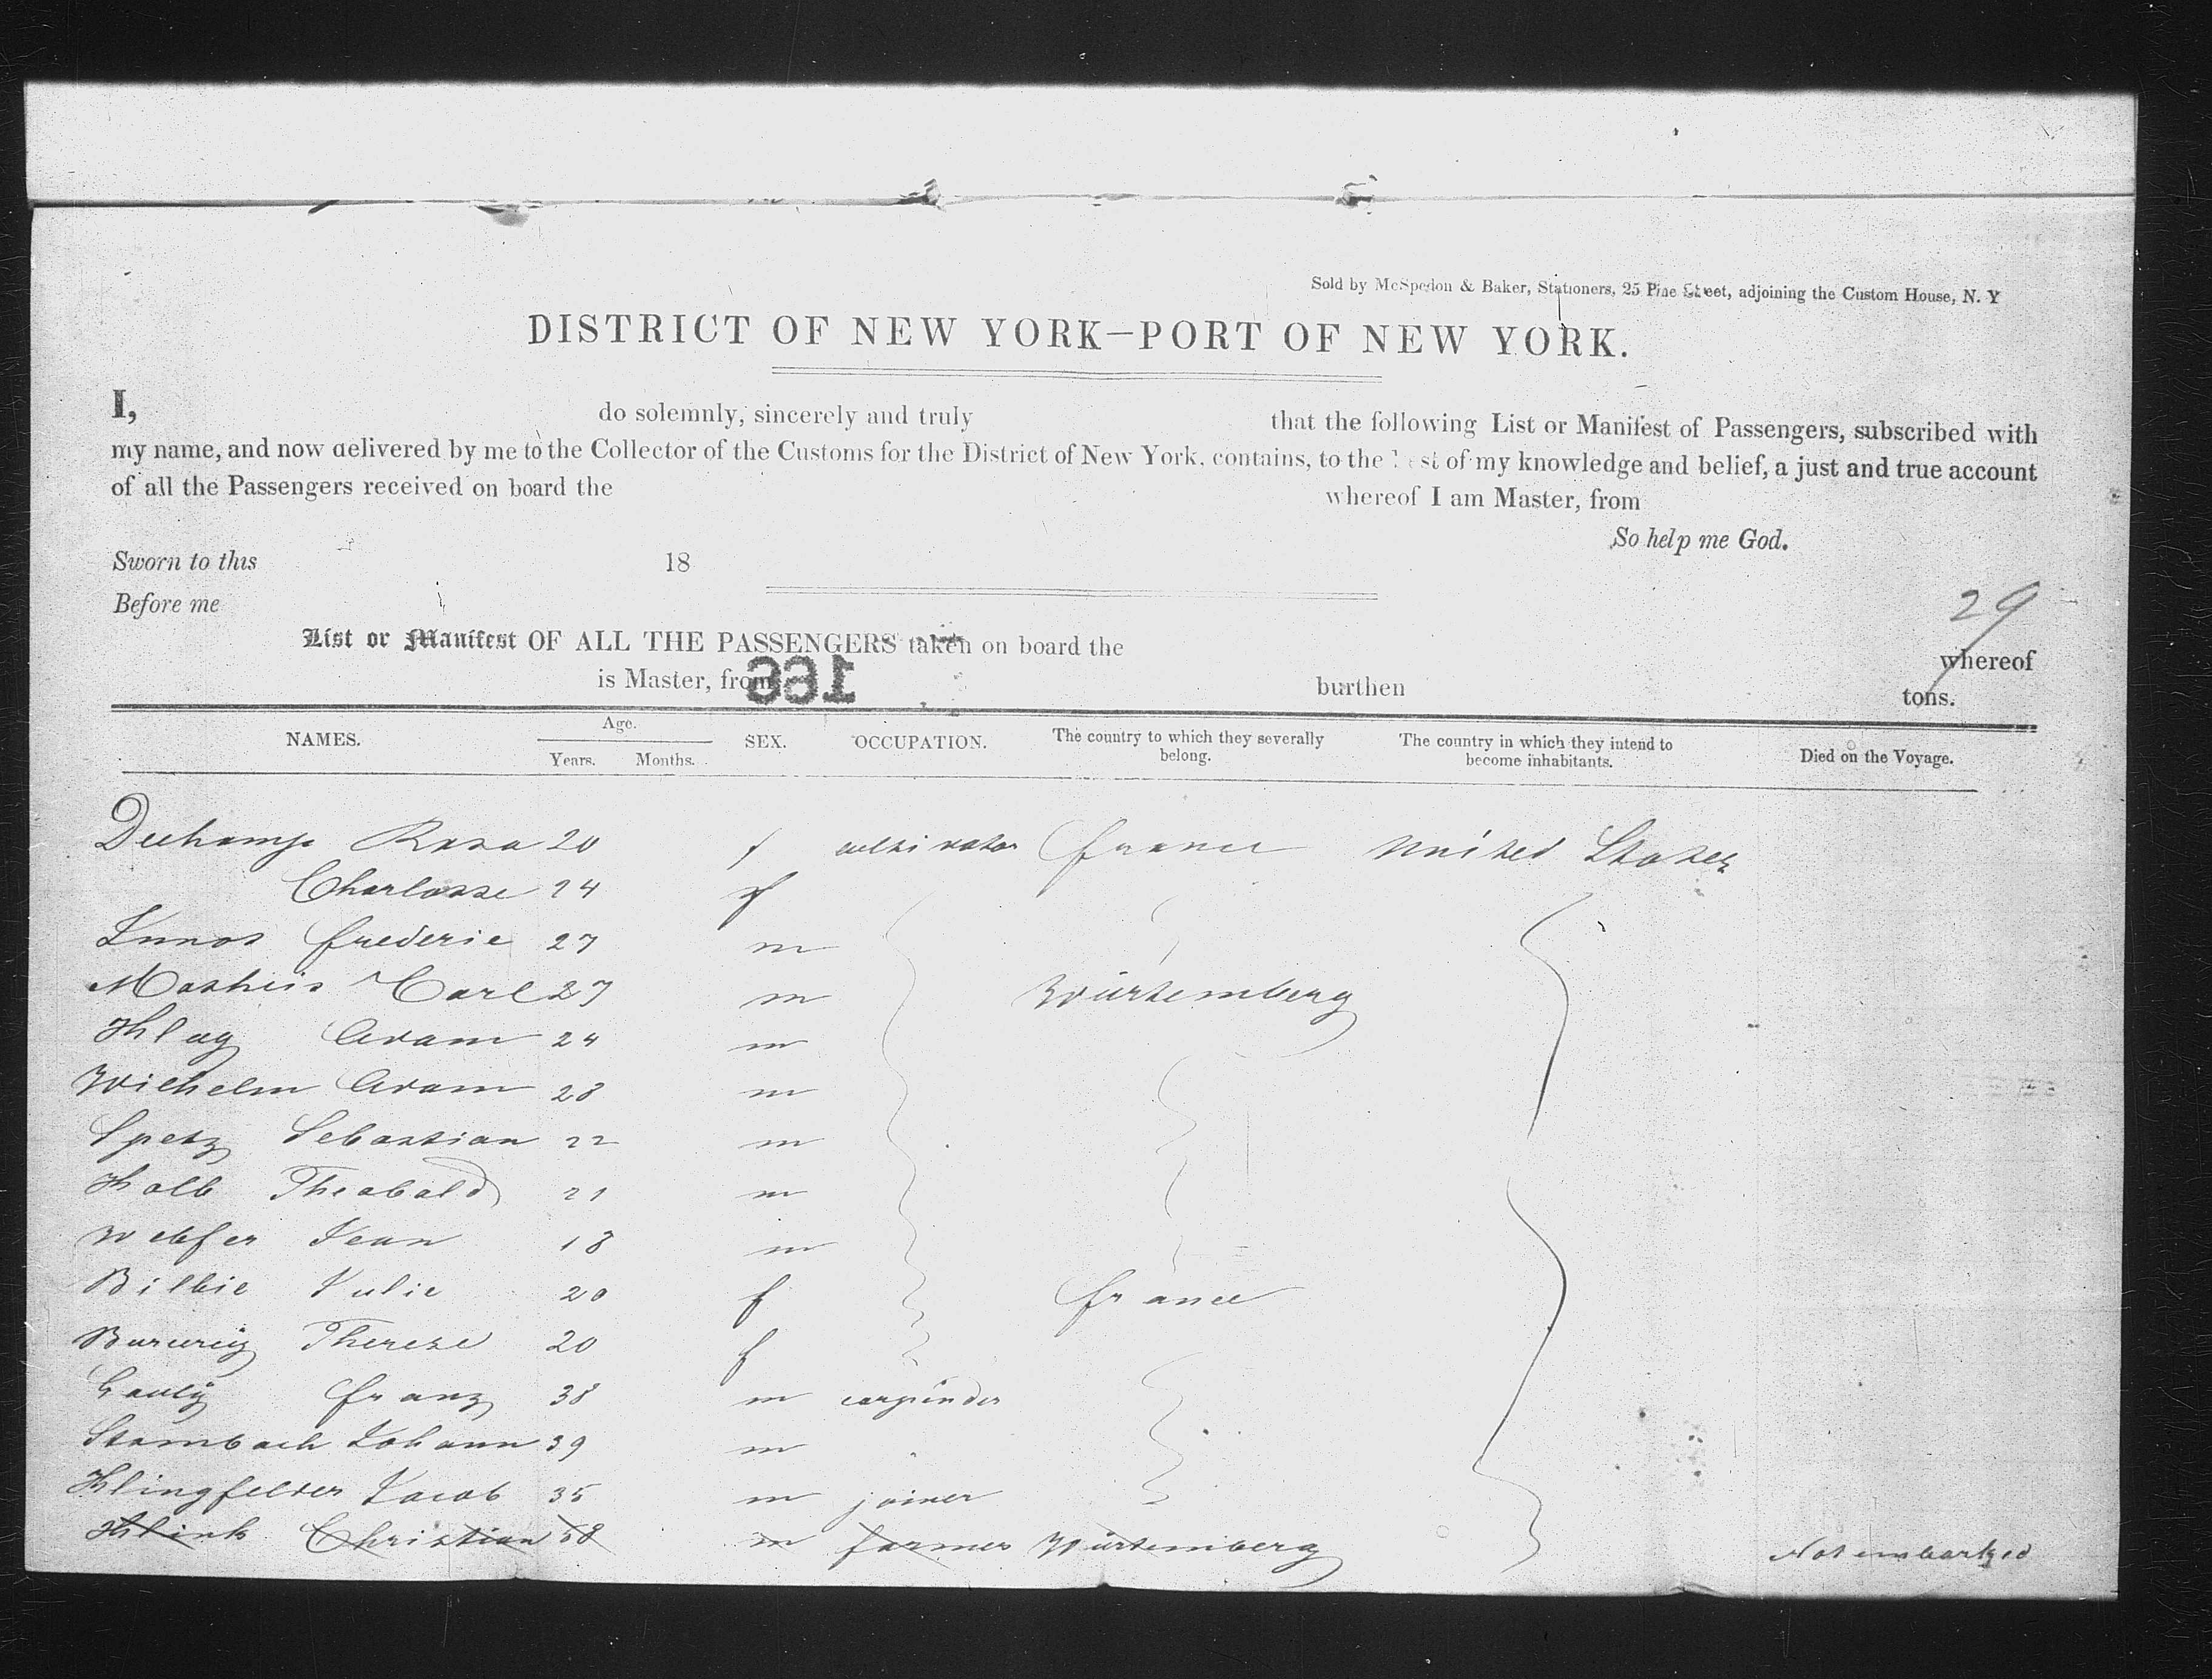 Sold by McSpedon & Baker, Stationers, 25 Pine Street, adjoining the Custom House, N. Y
DISTRICT OF NEW YORK–PORT OF NEW YORK.
I, do solemnly, sincerely and truly that the following List or Manifest of Passengers, subscribed with
my name, and now delivered by me to the Collector of the Customs for the District of New York, contains, to the best of my knowledge and belief, a just and true account
of all the Passengers received on board the whereof I am Master, from
So help me God.
Sworn to this 18
Before me
29
List or Manifest OF ALL THE PASSENGERS taken on board the whereof
is Master, from burthen tons.
166
NAMES. Age. Years. Months. SEX. OCCUPATION. The country to which they severally belong. The country in which they intend to become inhabitants. Died on the Voyage.
Rosa 20 f cultivator France United States
Charlotte 24 f
Frederic 27 m
Mathis Carl 27 m Würtemberg
Klug Adam 24 m
Wilhelm Adam 28 m
Spetz Sebastian 22 m
Kolb Theobald 21 m
Jean 18 m
Julie 20 f France
Therese 20 f
Franz 38 m carpinder
Stambach Johann 39 m
Klingfelter Jacob 35 m joiner
Klink Christian 58 m farmer Würtemberg Not embarked